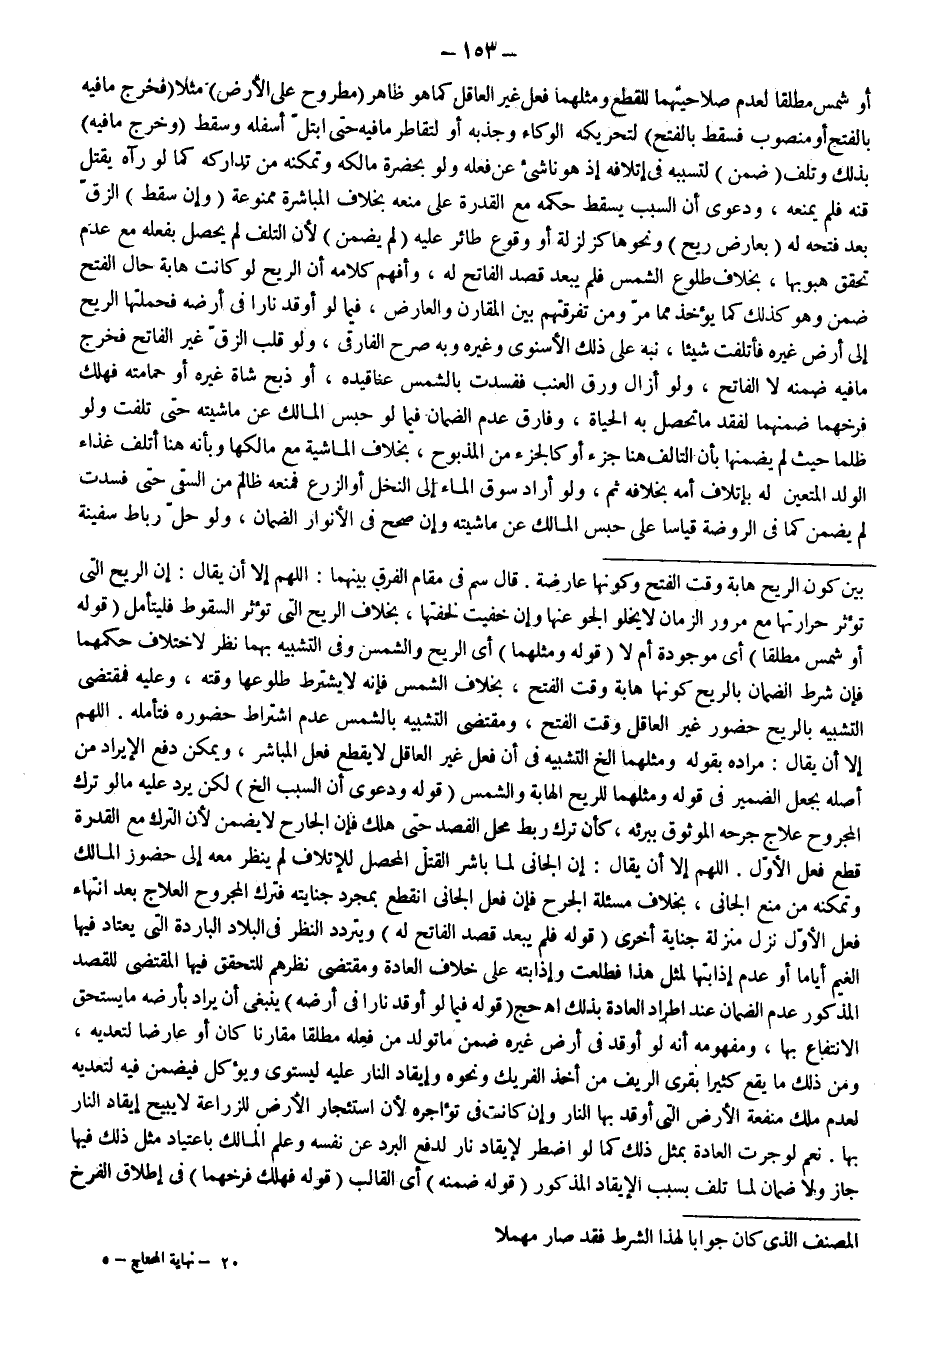 – ١٥٣ –
أو شمس مطلقا لعدم صلاحيتهما للقطع ومثلهما فعل غير العاقل كما هو ظاهر (مطروح على الأرض) مثلا (فخرج مافيه
بالفتح أو منصوب فسقط بالفتح) لتحريكه الوكاء وجذبه أو لتقاطر مافيه حتى ابتلّ أسفله وسقط (وخرج مافيه)
بذلك وتلف (ضمن) لتسببه فى إتلافه إذ هو ناشئ عن فعله ولو بحضرة مالكه وتمكنه من تداركه كما لو رآه يقتل
قنه فلم يمنعه ، ودعوى أن السبب يسقط حكمه مع القدرة على منعه بخلاف المباشرة ممنوعة (وإن سقط) الزقّ
بعد فتحه له (بعارض ريح) ونحوها كزلزلة أو وقوع طائر عليه (لم يضمن) لأن التلف لم يحصل بفعله مع عدم
تحقق هبوبها ، بخلاف طلوع الشمس فلم يبعد قصد الفاتح له ، وأفهم كلامه أن الريح لو كانت هابة حال الفتح
ضمن وهو كذلك كما يؤخذ مما مرّ ومن تفرقتهم بين المقارن والعارض ، فيما لو أوقد نارا فى أرضه فحملتها الريح
إلى أرض غيره فأتلفت شيئا ، نبه على ذلك الأسنوى وغيره وبه صرح الفارقى ، ولو قلب الزقّ غير الفاتح فخرج
مافيه ضمنه لا الفاتح ، ولو أزال ورق العنب ففسدت بالشمس عناقيده ، أو ذبح شاة غيره أو حمامته فهلك
فرخهما ضمنهما لفقد ماتحصل به الحياة ، وفارق عدم الضمان فيما لو حبس المالك عن ماشيته حتى تلفت ولو
ظلما حيث لم يضمنها بأن التالف هنا جزء أو كالجزء من المذبوح ، بخلاف الماشية مع مالكها وبأنه هنا أتلف غذاء
الولد المتعين له بإتلاف أمه بخلافه ثم ، ولو أراد سوق الماء إلى النخل أو الزرع فمنعه ظالم من السقى حتى فسدت
لم يضمن كما فى الروضة قياسا على حبس المالك عن ماشيته وإن صحح فى الأنوار الضمان ، ولو حلّ رباط سفينة
بين كون الريح هابة وقت الفتح وكونها عارضة . قال سم فى مقام الفرق بينهما : اللهم إلا أن يقال : إن الريح التى
تؤثر حرارتها مع مرور الزمان لايخلو الجو عنها وإن خفيت لخفتها ، بخلاف الريح التى تؤثر السقوط فليتأمل (قوله
أو شمس مطلقا) أى موجودة أم لا (قوله ومثلهما) أى الريح والشمس وفى التشبيه بهما نظر لاختلاف حكمهما
فإن شرط الضمان بالريح كونها هابة وقت الفتح ، بخلاف الشمس فإنه لايشترط طلوعها وقته ، وعليه فمقتضى
التشبيه بالريح حضور غير العاقل وقت الفتح ، ومقتضى التشبيه بالشمس عدم اشتراط حضوره فتأمله . اللهم
إلا أن يقال : مراده بقوله ومثلهما الخ التشبيه فى أن فعل غير العاقل لايقطع فعل المباشر ، ويمكن دفع الإيراد من
أصله بجعل الضمير فى قوله ومثلهما للريح الهابة والشمس (قوله ودعوى أن السبب الخ) لكن يرد عليه مالو ترك
المجروح علاج جرحه الموثوق ببرئه ، كأن ترك ربط محل الفصد حتى هلك فإن الجارح لايضمن لأن الترك مع القدرة
قطع فعل الأوّل . اللهم إلا أن يقال : إن الجانى لما باشر القتل المحصل للإتلاف لم ينظر معه إلى حضور المالك
وتمكنه من منع الجانى ، بخلاف مسئلة الجرح فإن فعل الجانى انقطع بمجرد جنايته فترك المجروح العلاج بعد انتهاء
فعل الأوّل نزل منزلة جناية أخرى (قوله فلم يبعد قصد الفاتح له) ويتردد النظر فى البلاد الباردة التى يعتاد فيها
الغيم أياما أو عدم إذابتها لمثل هذا فطلعت وإذابته على خلاف العادة ومقتضى نظرهم للتحقق فيها المقتضى للقصد
المذكور عدم الضمان عند اطراد العادة بذلك اه حج (قوله فيما لو أوقد نارا فى أرضه) ينبغى أن يراد بأرضه مايستحق
الانتفاع بها ، ومفهومه أنه لو أوقد فى أرض غيره ضمن ماتولد من فعله مطلقا مقارنا كان أو عارضا لتعديه ،
ومن ذلك ما يقع كثيرا بقرى الريف من أخذ الفريك ونحوه وإيقاد النار عليه ليستوى ويؤكل فيضمن فيه لتعديه
لعدم ملك منفعة الأرض التى أوقد بها النار وإن كانت فى تؤاجره لأن استئجار الأرض للزراعة لايبيح إيقاد النار
بها . نعم لو جرت العادة بمثل ذلك كما لو اضطر لإيقاد نار لدفع البرد عن نفسه وعلم المالك باعتياد مثل ذلك فيها
جاز ولا ضمان لما تلف بسبب الإيقاد المذكور (قوله ضمنه) أى القالب (قوله فهلك فرخهما) فى إطلاق الفرخ
المصنف الذى كان جوابا لهذا الشرط فقد صار مهملا
٢٠ – نهاية المحتاج – ٥